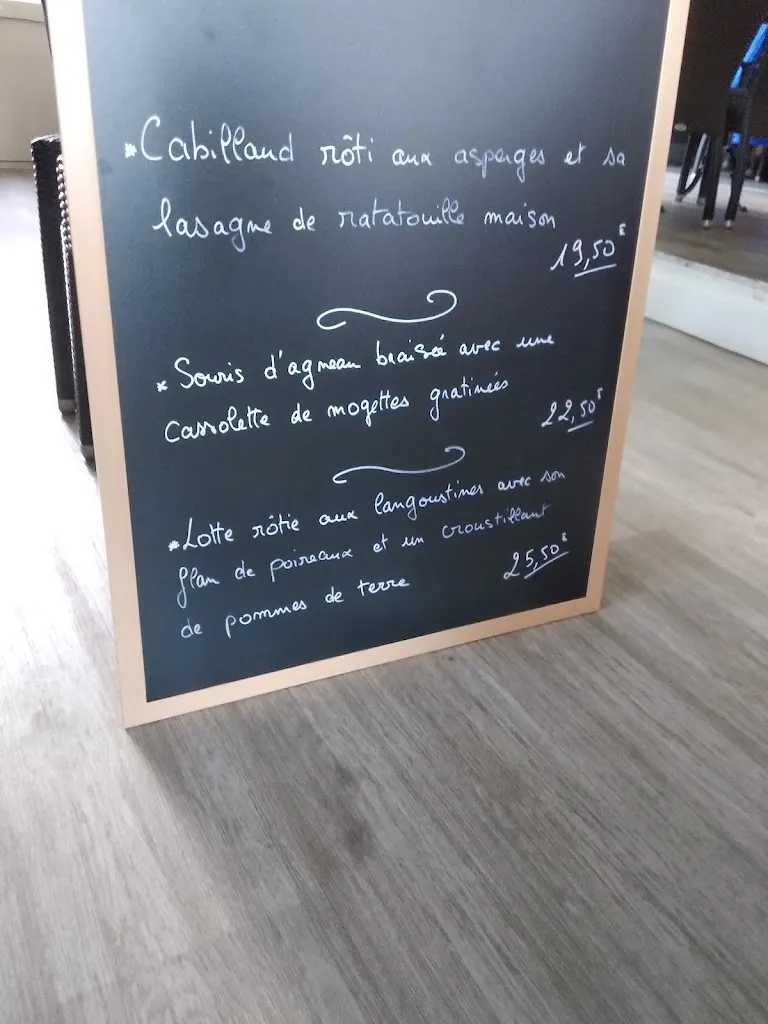 * Cabillaud rôti aux asperges et sa
lasagne de ratatouille maison
19,50€
* Souris d'agneau braisée avec une
cassolette de mogettes gratinées
22,50€
* Lotte rôtie aux langoustines avec son
flan de poireaux et un croustillant
de pommes de terre
25,50€